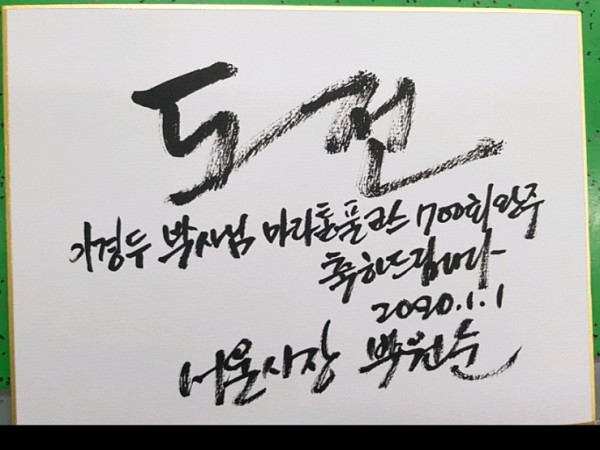 도전
가경두 박사님 마라톤풀코스 700회 완주
축하드립니다
2020.1.1
서울시장 박원순